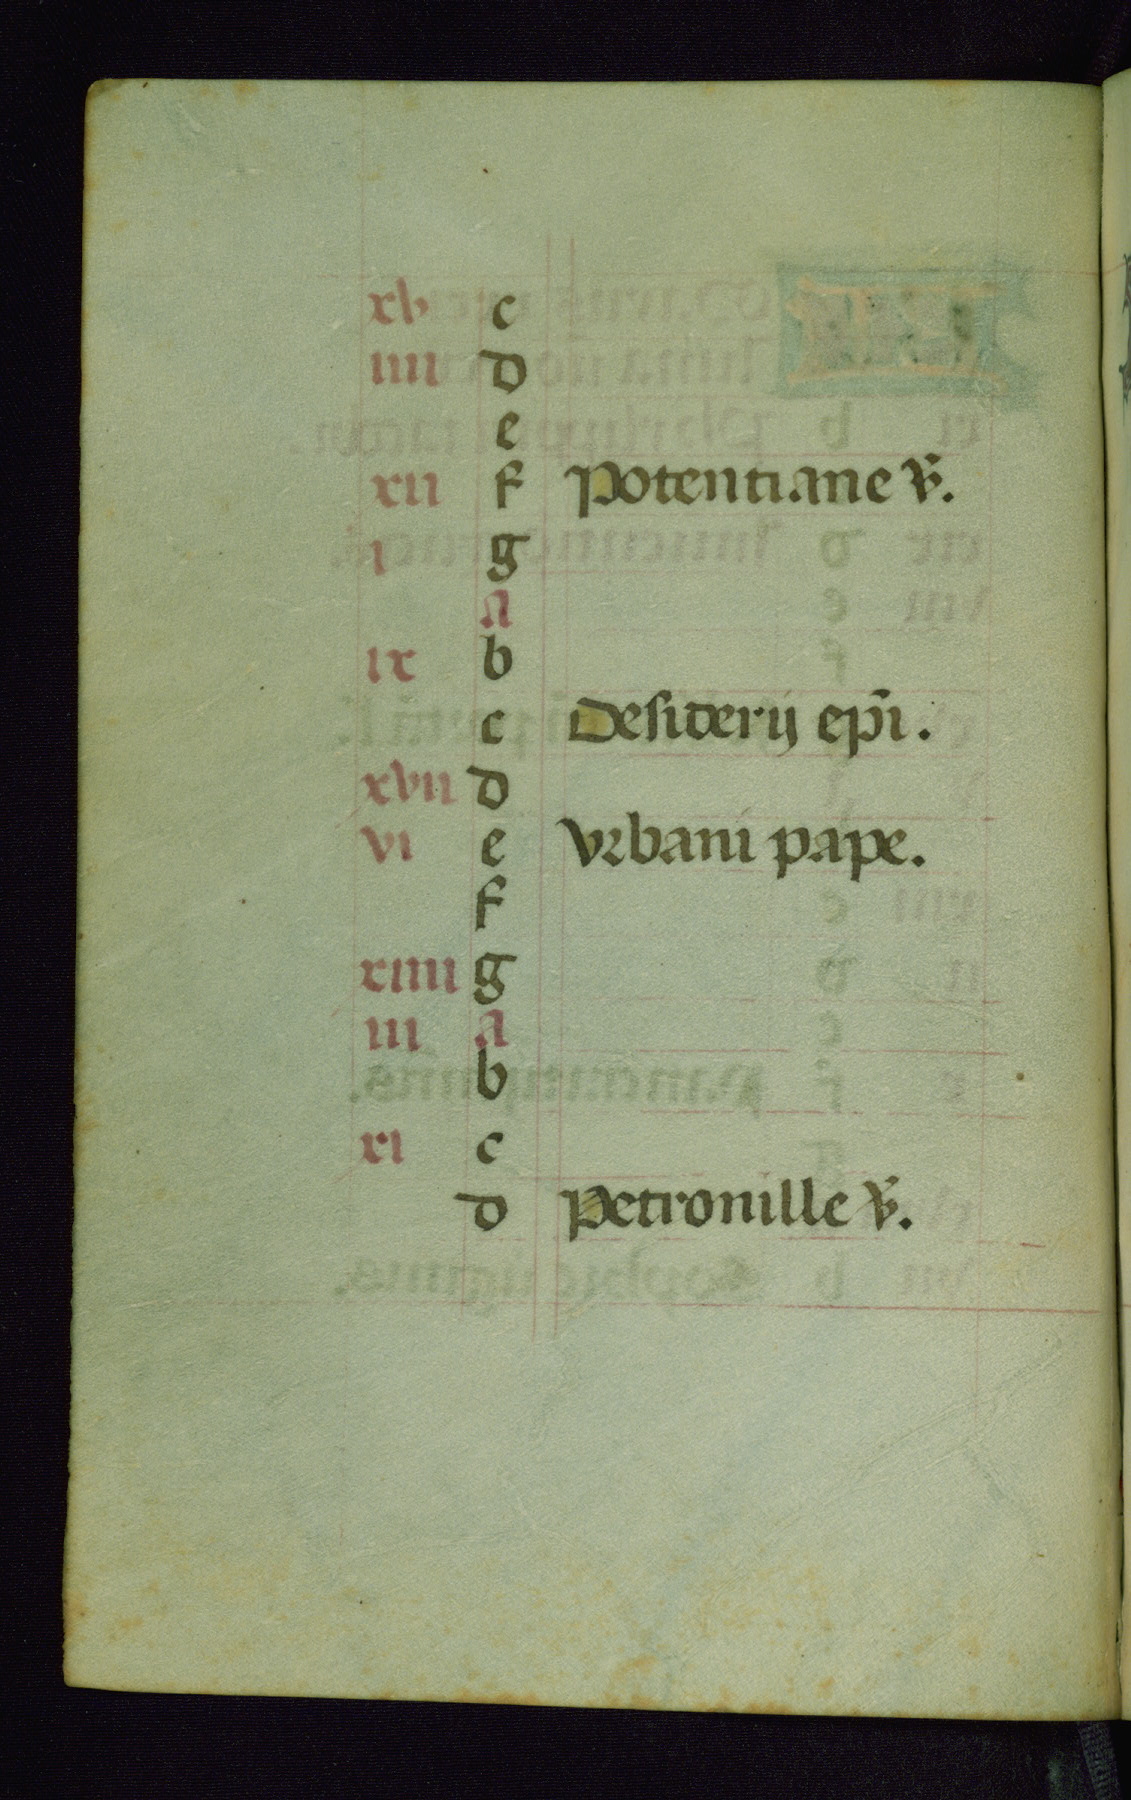 xv c
iiii d
e
xii f Potentiane v̄.
i g
a
ix b
c Desiderij ep̄i.
xvii d
vi e Vrbani pape.
f
xiiii g
iii a
b
xi c
d Petronille v̄.